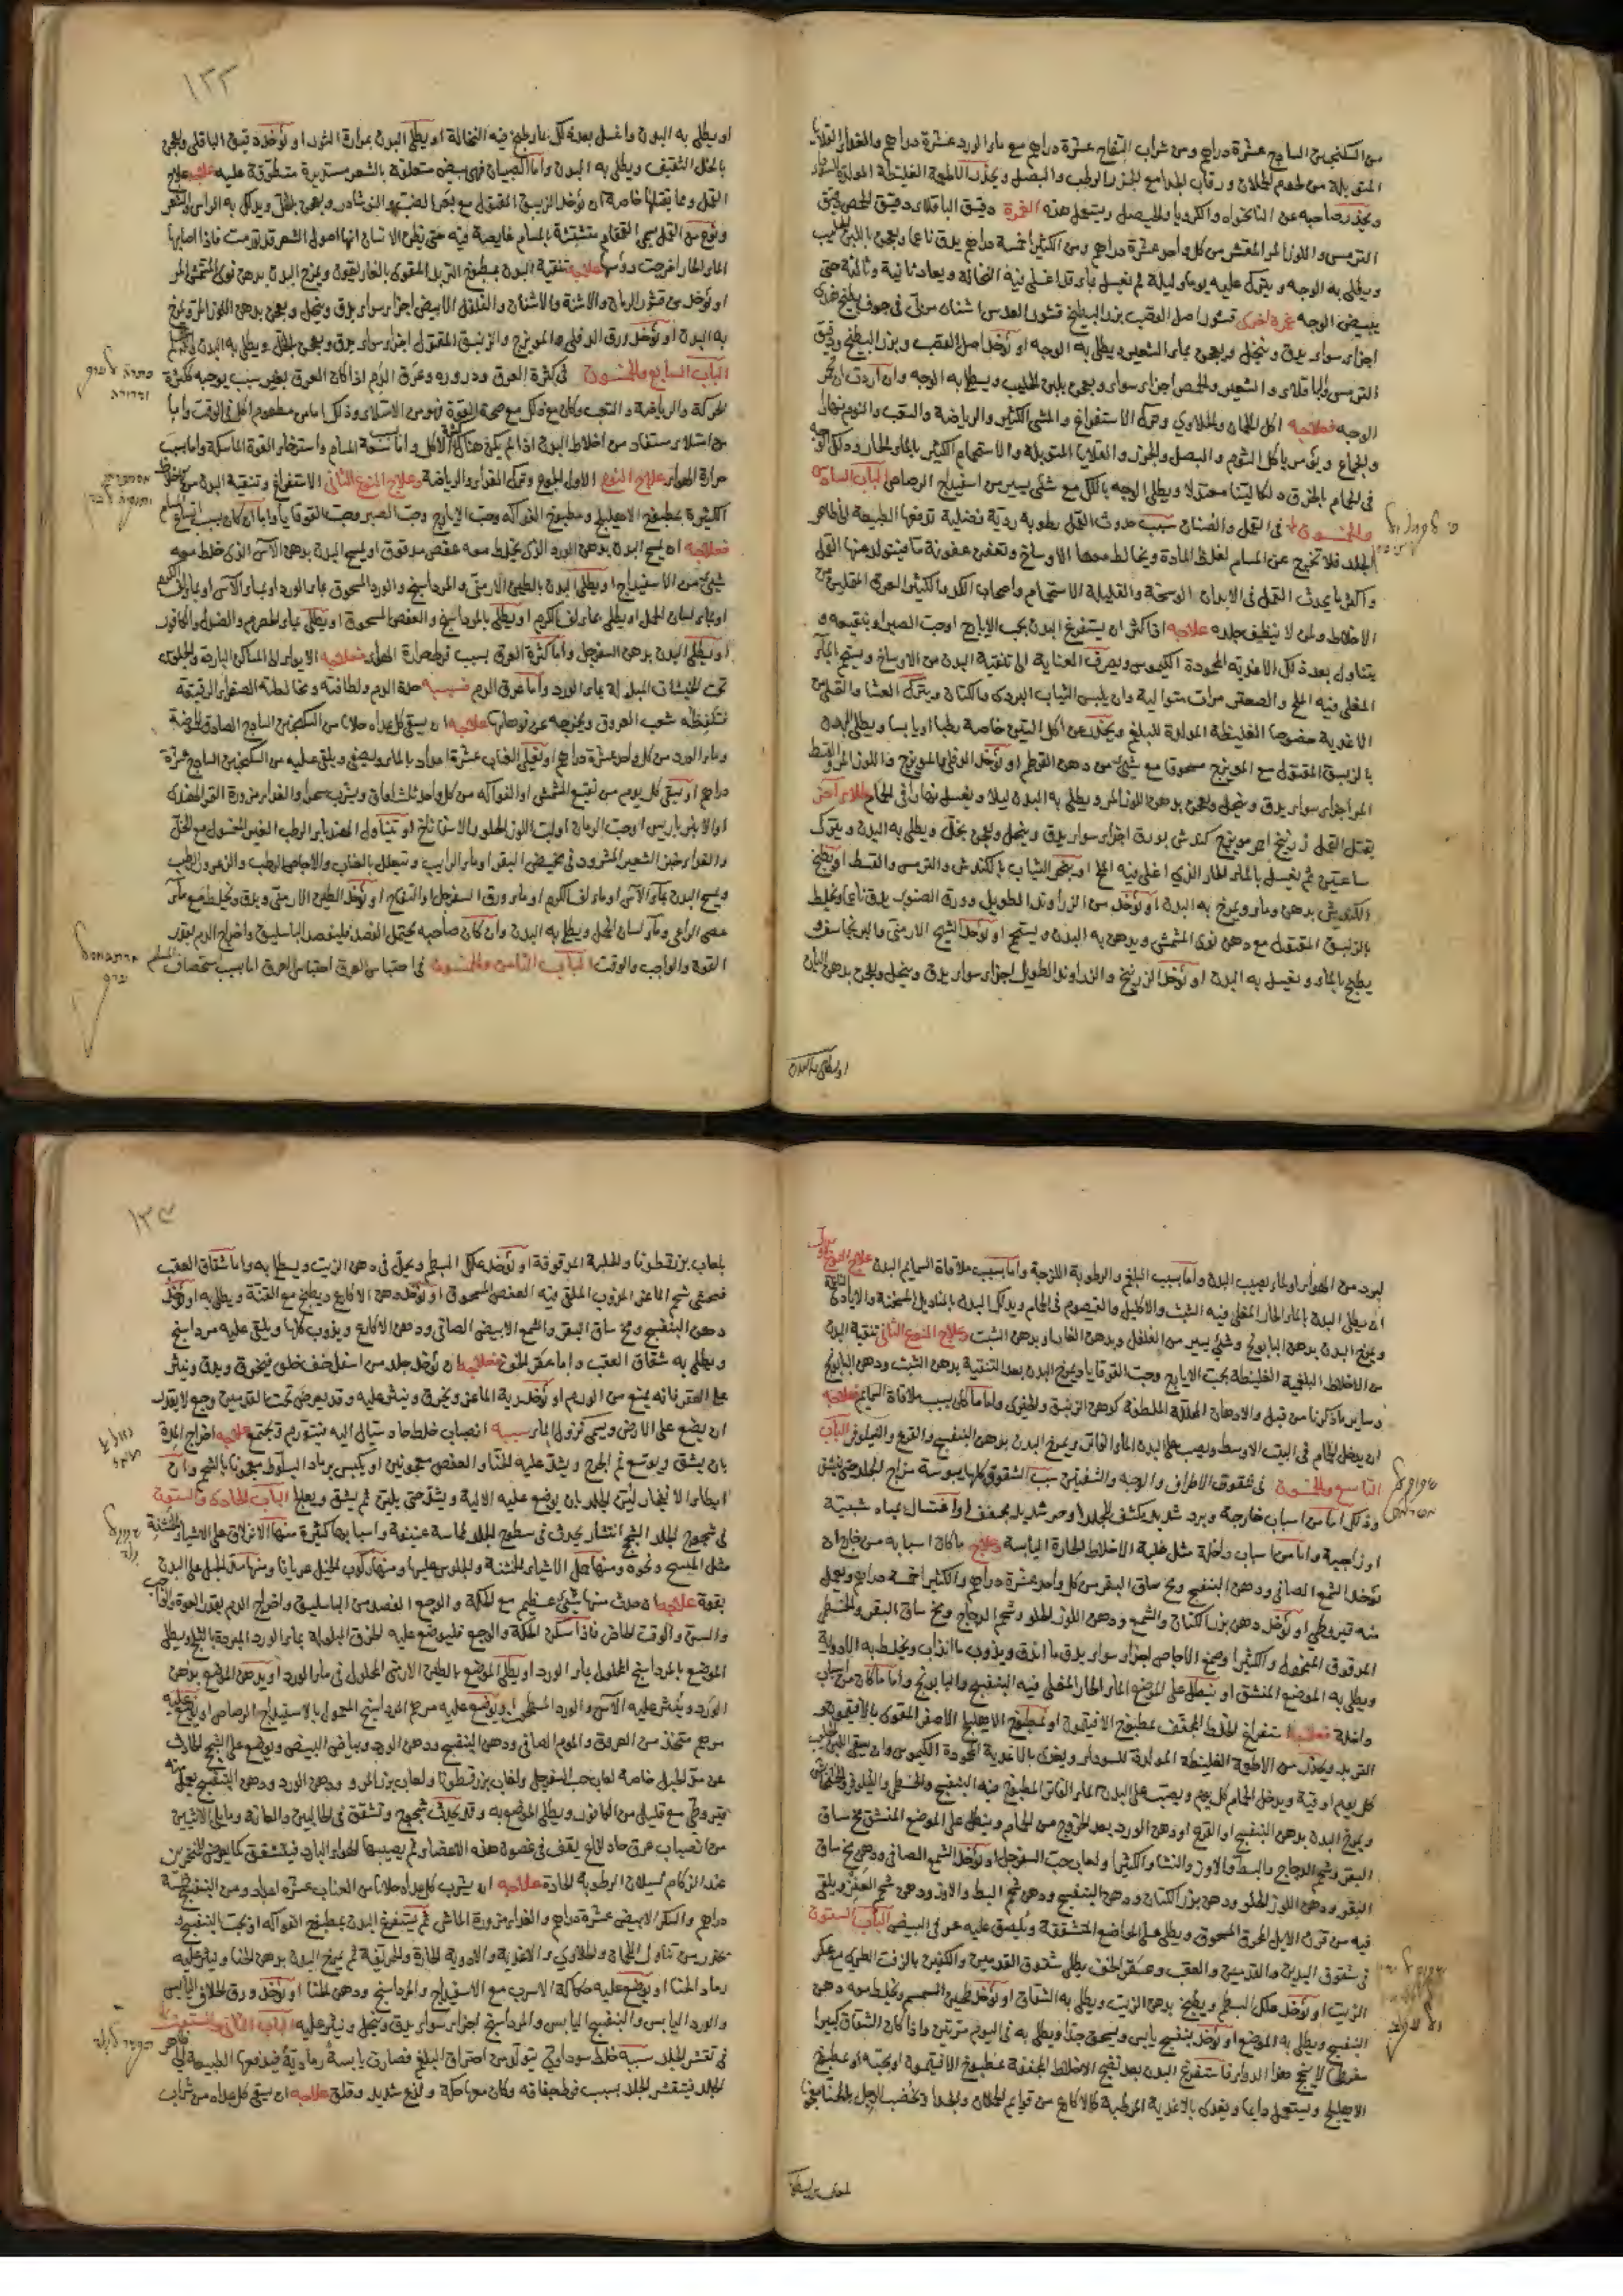 من السكنجبين الساذج عشرة دراهم ومن شراب التفاح عشرة دراهم مع ماء الورد عشرة دراهم والغذاء القلايا
المتوبلة من لحوم الحملان ورقاب الجداء مع الجزر الرطب والبصل ويحذر الاطعمة الغليظة المولدة
ويحذر صاحبه عن النانخواه والكرويا والبصل ويستعمل هذه الغمرة دقيق الباقلاى دقيق الحمص دقيق
الترمس واللوز المر المقشر من كل واحد عشرة دراهم ومن الكثيرا خمسة دراهم يدق ناعما ويعجن باللبن الحليب
ويطلى به الوجه ويترك عليه يوما وليلة ثم يغسل بماء قد اغلى فيه النخالة ويعاد ثانية وثالثة حتى
يبيض الوجه غمرة اخرى قشور اصل القصب بزر البطيخ قشور العدس اشنان مربى فى جوف بطيخ هندى
اجزاء سواء يدق وينخل ويعجن بماء الشعير ويطلى به الوجه او يؤخذ اصل القصب وبزر البطيخ ودقيق
الترمس والباقلاى والشعير والحمص اجزاء سواء ويعجن بلبن الحليب ويطلى به الوجه وان اردت ان تحمر
الوجه فعلاجه اكل اللحمان والحلاوي وترك الاستفراغ والمشى الكثير والرياضة والتعب والنوم نهارا
والجماع ويؤمر باكل الثوم والبصل والجزر والقلايا المتوبلة والاستحمام الكثير بالماء الحار ودلك الوجه
فى الحمام بالخرق دلكا لينا معتدلا ويطلى الوجه باللك مع شئ يسير من اسفيداج الرصاص الباب السادس
والخمسون فى القمل والصئبان سبب حدوث القمل رطوبة ردية فضلية تدفعها الطبيعة الى ظاهر
الجلد فلا تخرج عن المسام لغلظ المادة ويخالط معها الاوساخ وتعفن عفونة ما فيتولد عنها القمل
واكثر ما يحدث القمل فى الابدان الوسخة والقليلة الاستحمام واصحاب الكد والكثير العرق المقلين من
الاخلاط ولمن لا ينظف جلده علاجه اذا كثر ان يستفرغ البدن بحب الايارج او حب الصبر او بنقيعه و
يتناول بعد ذلك الاغذية المحمودة الكيموس ويصرف العناية الى تنقية البدن من الاوساخ ويستحم بالماء
المغلى فيه الملح والصعتر مرات متوالية وان يلبس الثياب البردى والكتان ويترك العشا والتقليل من
الاغذية خصوصا الغليظة المولدة للبلغم ويحذر عن اكل التين خاصة رطبا او يابسا ويطلى البدن
بالزيبق المقتول مع الميويزج مسحوقا مع شئ من دهن القرطم او يؤخذ الدفلى بالميويزج واللوز المر والقسط
المر اجزاء سواء يدق وينخل ويعجن بدهن اللوز المر ويطلى به البدن ليلا ويغسل نهارا فى الحمام
يقتل القمل زرنيخ احمر ميويزج كندش بورق اجزاء سواء يدق وينخل ويعجن بخل ويطلى به البدن ويترك
ساعتين ثم يغسل بالماء الحار الذى اغلى فيه الملح او يبخر الثياب بالكندش والترمس والقسط او يطبخ
الكندش بدهن وماء ويمرخ به البدن او يؤخذ من الزراوند الطويل وورق الصنوبر يدق ناعما ويخلط
بالزيبق المقتول مع دهن نوى المشمش ويدهن به البدن ويستحم او يؤخذ الشيح الارمنى والبرنجاسف و
يطبخ بالماء ويغسل به البدن او يؤخذ الزرنيخ والزراوند الطويل اجزاء سواء يدق وينخل ويعجن بدهن البان
او يطلى به البدن
١٣٣
او يطلى به البدن واغسل بعد ذلك بماء طبخ فيه النخالة او يطلى البدن بمرارة الثور او يؤخذ دقيق الباقلى ويعجن
بالخل الثقيف ويطلى به البدن واما الصيبان فهى بيض متعلقة بالشعر مستديرة متطوقة عليه علاجه علاج
القمل ومما يقتلها خاصة ان يؤخذ الزيبق المقتول مع بعر الضب والنوشادر ويعجن بالخل ويدلك به الراس والشعر
ونوع من القمل يسمى القمقام متشبثة بالمسام غايصة فيه حتى يظن الانسان انها اصول الشعر قد تورمت فاذا اصابها
الماء الحار اخرجت رؤسها علاجه تنقية البدن بمطبوخ التربد المقوى بالغاريقون ويمرخ البدن بدهن نوى المشمش المر
او يؤخذ من قشور الرمان والاشنة والاشنان والفلفل الابيض اجزاء سواء يدق وينخل ويعجن بدهن اللوز المر ويمرخ
به البدن او يؤخذ ورق الدفلى والميويزج والزيبق المقتول اجزاء سواء يدق ويعجن بالخل ويطلى به البدن
الباب السابع والخمسون فى كثرة العرق ودروره وعرق الدم اذا كان العرق بغير سبب يوجبه ككثرة
الحركة والرياضة والتعب وكان مع ذلك مع صحة القوة فهو من الامتلاء وذلك اما من مطعوم اكل فى الوقت واما
من امتلاء مستفاد من اخلاط البدن اذا لم يكن هناك كثرة الاكل واما بسبب سعة المسام واسترخاء القوة الماسكة واما بسبب
حرارة الهواء علاج النوع الاول الجوع وترك الغذاء والرياضة وعلاج النوع الثانى الاستفراغ وتنقية البدن من الاخلاط
الكثيرة بمطبوخ الاهليلج ومطبوخ الفواكه وحب الايارج وحب الصبر وحب القوقايا واما ان كان بسبب اتساع المسام
فعلاجه ان يمسح البدن بدهن الورد الذى يخلط معه عفص مدقوق او يمسح البدن بدهن الآس الذى خلط معه
شئ من الاسفيداج او يطلى البدن بالطين الارمنى والمرداسنج والورد المسحوق بماء الورد او بماء الآس او بماء لف الكرم
او بماء لسان الحمل او يطلى بماء لف الكرم او يطلى بالمرداسنج والعفص المسحوق او يطلى بماء الحصرم والصندل والكافور
او يطلى البدن بدهن السفرجل واما كثرة العرق بسبب فرط حرارة الهواء فعلاجه الايواء الى المساكن الباردة والجلوس
تحت الخيشات المبلولة بماء الورد واما عرق الدم فسببه حدة الدم ولطافته ومخالطته الصفراء الرقيقة
علاجه ان يسقى كل غداة جلابا من السكنجبين الساذج
وماء الورد من كل واحد عشرة دراهم او يغلى العناب عشرة اعداد بالماء ويصفى ويلقى عليه من السكنجبين الساذج عشرة
دراهم او يسقى كل يوم من نقيع المشمش او الفواكه من كل واحد ثلث اواق ويشرب سحرا والغذاء مزورة التمر الهندى
او الانبرباريس او حب الرمان او لب اللوز الحلو والاسفاناخ او يتناول الهندباء الرطب الغير المغسول مع الخل
والغذاء خبز الشعير المثرود فى مخيض البقر او ماء الرايب ويتعلل بالعناب والاجاص الرطب والزعرور الرطب
ويمسح البدن بماء الآس او ماء لف الكرم او ماء ورق السفرجل والتفاح او يؤخذ الطين الارمنى ويدق ويخلط مع ماء
عصى الراعى وماء لسان الحمل ويطلى به البدن وان كان صاحبه يحتمل الفصد فليفصد الباسليق واخراج الدم بقدر
القوة والواجب والوقت الباب الثامن والخمسون فى احتباس العرق احتباس العرق اما بسبب استحصاف المسام
لبرد من الهواء او الماء يصيب البدن واما بسبب البلغم والرطوبة اللزجة واما بسبب ملاقاة السمايم البدن علاج النوع الاول
ان يطلى البدن بالماء الحار المغلى فيه الشبث والاكليل والقيصوم فى الحمام ويدلك البدن بالمناديل الخشنة والايادى
ويمرخ البدن بدهن البابونج وشئ يسير من الفلفل وبدهن الغار او بدهن الشبث وعلاج النوع الثانى تنقية البدن
من الاخلاط البلغمية الغليظة بحب الايارج وحب القوقايا ويمرخ البدن بعد التنقية بدهن الشبث ودهن البابونج
وساير ما ذكرنا من قبل والادهان المحللة الملطفة كدهن الزنبق والخيرى واما ما كان بسبب ملاقاة السمايم فعلاجه
ان يدخل الحمام فى البيت الاوسط ويصب على البدن الماء الفاتر ويمرخ البدن بدهن البنفسج والقرع والنيلوفر الباب
التاسع والخمسون فى شقوق الاطراف والوجه والشفتين سبب الشقوق كلها يبوسة مزاج الجلد حتى ينشق
وذلك اما من اسباب خارجة وبرد شديد يكثف الجلد او حر شديد يجفف او اغتسال بمياه شبيّة
او زاجية واما من اسباب داخلة مثل غلبة الاخلاط الحارة اليابسة وعلاج ما كان اسبابه من خارج ان
يؤخذ الشمع الصافى ودهن البنفسج ومخ ساق البقر من كل واحد عشرة دراهم والكثيرا خمسة دراهم ويعمل
منه قيروطى او يؤخذ دهن بزر الكتان والشمع ودهن اللوز الحلو وشحم الدجاج ومخ ساق البقر والخطمى
المدقوق المنخول والكثيرا وصمغ الاجاص اجزاء سواء يدق ما اندق ويذوب ما انذاب ويخلط به الادوية
ويطلى به الموضع المنشق او ينطل على الموضع الماء الحار المغلى فيه البنفسج والبابونج واما ما كان من اسباب
داخلة فعلاجها استفراغ الخلط المجفف بمطبوخ الافتيمون او بمطبوخ الاهليلج الاصفر المقوى بالافتيمون و
التربد ويحذر من الاطعمة الغليظة المولدة للسوداء ويغذى بالاغذية المحمودة الكيموس وان يسقى اللبن الحليب
كل يوم اوقية ويدخل الحمام كل يوم ويصب على البدن الماء الفاتر المطبوخ فيه البنفسج والخطمى
ويمرخ البدن بدهن البنفسج او القرع او دهن الورد بعد الخروج من الحمام ويطلى على الموضع المنشق مخ ساق
البقر وشحم الدجاج والبط والاوز والنشا والكثيرا ولعاب حب السفرجل او يؤخذ الشمع الصافى ودهن مخ ساق
البقر ودهن اللوز الحلو ودهن بزر الكتان ودهن البنفسج ودهن شحم البط والاوز ودهن شحم العنز ويلقى
فيه من قرن الايل المحرق المسحوق ويطلى على المواضع المتشققة ويلصق عليه غرقى البيض الباب الستون
فى شقوق اليدين والقدمين والعقب وعقر الخف يطلى شقوق القدمين والكفين بالزفت الطرى مع عكر
الزيت او يؤخذ علك البطم ويطبخ بدهن الزيت ويطلى به الشقاق او يؤخذ طحين السمسم ويخلط معه دهن
البنفسج ويطلى به الموضع او يؤخذ بنفسج يابس ويسحق جدا ويطلى به فى اليوم مرتين واذا كان الشقاق كبيرا
لا ينجح هذا الدواء فاستفرغ البدن بعد نضج الاخلاط المجففة بمطبوخ الافتيمون او بحبه او بمطبوخ
الاهليلج ويستعمل دايما ويغذى بالاغذية المرطبة كالاكارع من قوايم الحملان والجداء وتخضب الرجل بالحنا
١٣٤
بلعاب بزر قطونا والحلبة المدقوقة او يؤخذ علك البطم ويحل فى دهن الزيت ويطلى به واما شقاق العقب
شحم الماعز المذوب الملقى فيه العفص المسحوق او يؤخذ دهن الاكارع ويطبخ مع القنة ويطلى به او يؤخذ
دهن البنفسج ومخ ساق البقر والشمع الابيض الصافى ودهن الاكارع ويذوب كلها ويلقى عليه مرداسنج
ويطلى به شقاق العقب واما عقر الخف فعلاجه ان يؤخذ جلد من اسفل خف خلق فيحرق ويدق وينثر
على العقر فانه يمنع من الورم او يؤخذ رية الماعز ويحرق وينثر عليه وقد يعرض تحت القدمين وجع لا يقدر
ان يضع على الارض ويسمى نزول الماء سببه انصباب خلط حاد سيال اليه فيتورم ويجتمع علاجه اخراج المادة
بان يشق ويوسع فم الجرح ويشد عليه الحناء والعفص معجونين او يكبس برماد البلوط معجونا بالشحم وان
ابطاوا الانفجار لين الجلد بان يوضع عليه الالية ويشد حتى يلين ثم يشق ويعالج الباب الحادى والستون
فى سحوج الجلد السحج انتشار يحدث فى سطوح الجلد لمماسة عنيفة واسبابها كثيرة منها الانزلاق على الاشياء الخشنة
مثل المسح ونحوه ومنها حمل الاشياء الخشنة والجلوس عليها ومنها ركوب الخيل عريانا ومنها مد الحبل على البدن
بقوة علاجها ان حدث منها شئ عظيم مع الحكة والوجع الفصد من الباسليق واخراج الدم بقدر القوة والواجب
والسن والوقت الحاضر فاذا سكن الحكة والوجع فليوضع عليه الخرق المبلولة بماء الورد المبردة بالثلج ويطلى
الموضع بالمرداسنج المحلول بماء الورد او يطلى الموضع بالطين الارمنى المحلول فى ماء الورد او يدهن الموضع بدهن
الورد وينثر عليه الآس والورد المطحون او يوضع عليه مرهم المرداسنج المعمول بالاسفيداج الرصاص او يوضع عليه
مرهم متخذ من العروق والموم الصافى ودهن البنفسج ودهن الورد وبياض البيض ويوضع على السحج الحادث
عن مد الحبل خاصة لعاب حب السفرجل ولعاب بزر قطونا ولعاب بزر المرو ودهن الورد ودهن البنفسج يعمل منه
قيروطى مع قليل من الكافور ويطلى الموضع به وقد يحدث سحوج وتشقق فى الحالبين والعانة وما يلى الانثيين
من انصباب عرق حاد لاذع يقف فى غضون هذه الاعضاء ثم يصيبها الهواء البارد فيتشقق كما يعرض للمنخرين
عند الزكام لسيلان الرطوبة الحادة علاجه ان يشرب كل غداة جلابا من العناب عشرة اعداد ومن البنفسج خمسة
دراهم والسكر الابيض عشرة دراهم والغذاء مزورة الماش ثم يستفرغ البدن بمطبوخ الفواكه او بحب البنفسج و
يحذر من تناول اللحمان والحلاوى والاغذية والادوية الحارة والحريفة ثم يمرخ البدن بدهن الحنا وينثر عليه
رماد الحنا او يوضع عليه حكاكة الاسرب مع الاسفيداج والمرداسنج ودهن الحنا او يؤخذ ورق الخلاف اليابس
والورد اليابس والبنفسج اليابس والمرداسنج اجزاء سواء يدق وينخل وينثر عليه الباب الثانى والستون
فى تقشر الجلد سببه خلط سوداوى يتولد من احتراق البلغم فصارت يابسة رمادية فيدفعها الطبيعة الى ظاهر
الجلد فيتقشر الجلد بسبب فرط جفافه وكان معها حكة ولذع شديد وقلق علاجه ان يسقى كل غداة من شراب